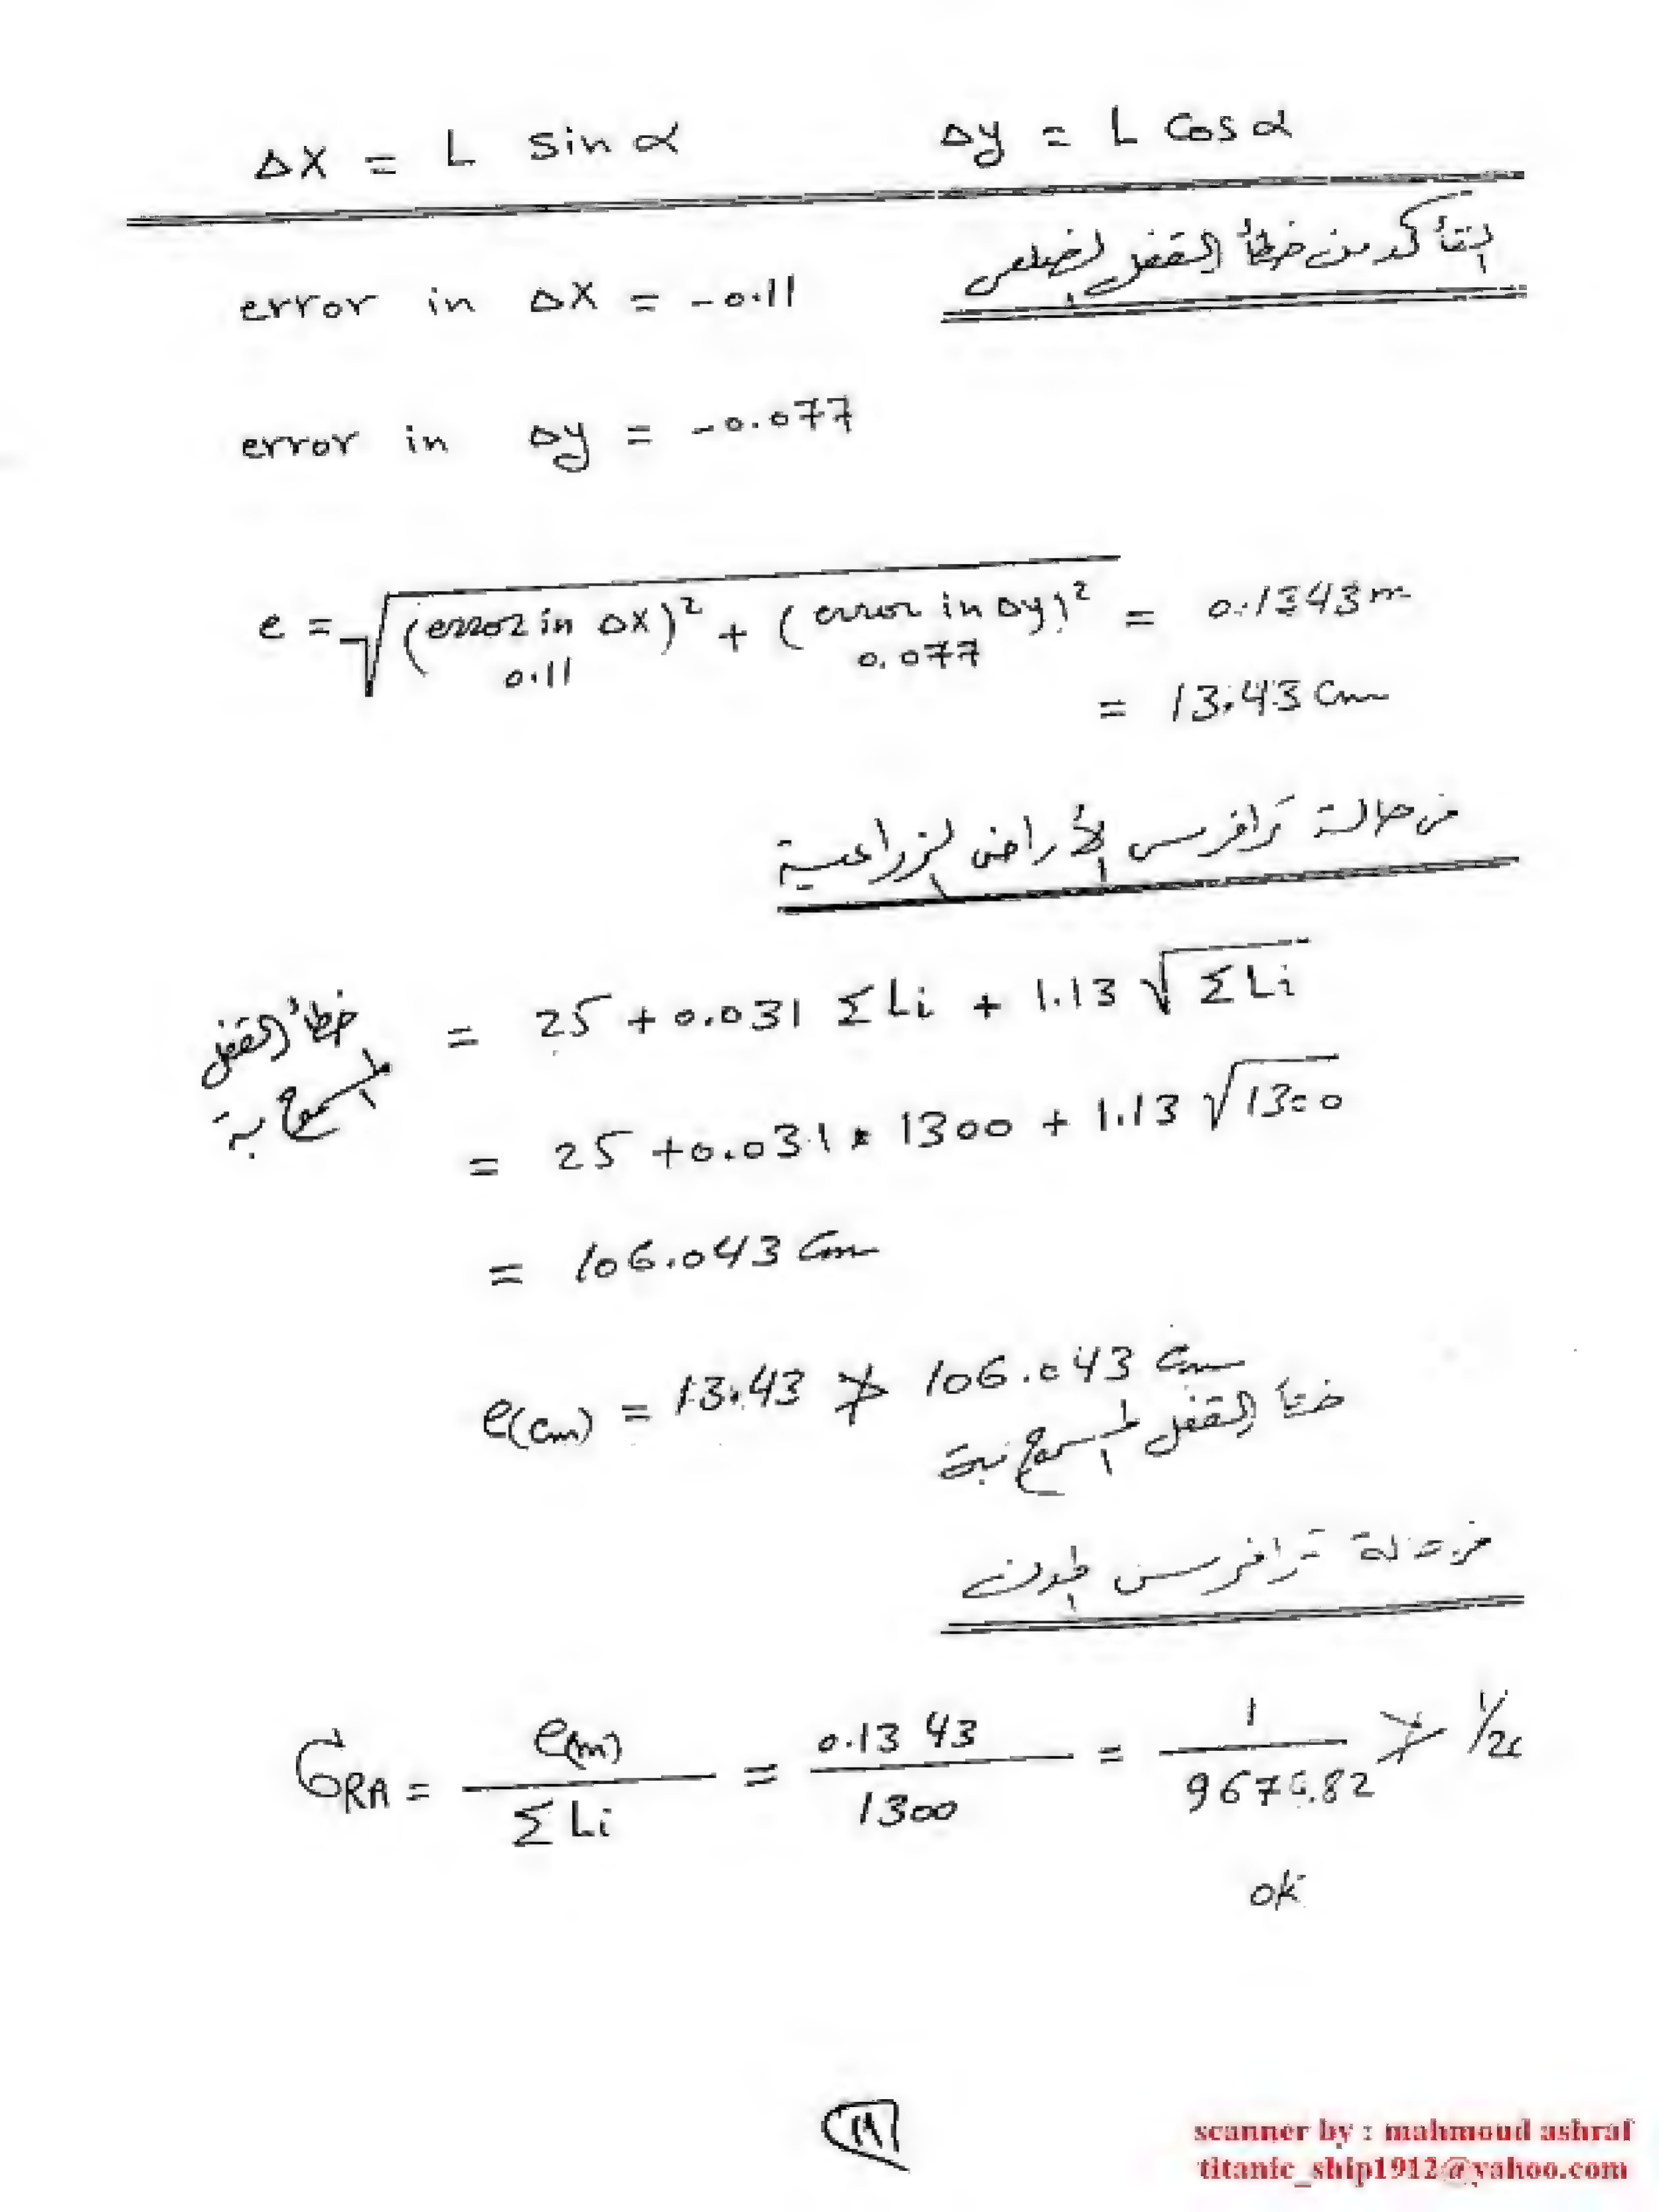 ΔX = L sin α    Δy = L cos α
التأكد من خطأ القفل الضلعى
error in ΔX = -0.11
error in Δy = -0.077
e = √((error in ΔX)² + (error in Δy)²) = 0.1343 m
0.11    0.077
= 13.43 cm
فى حالة ترافرس الأراضى الزراعية
خطأ القفل = 25 + 0.031 Σ Li + 1.13 √Σ Li
المسموح به = 25 + 0.031 * 1300 + 1.13 √1300
= 106.043 cm
e(cm) = 13.43 ≯ 106.043 cm
خطأ القفل المسموح به
فى حالة ترافرس المدن
RA = e(m) / Σ Li = 0.1343 / 1300 = 1 / 967.82 ≯
ok
scanner by : mahmoud ashraf
titanic_ship1912@yahoo.com